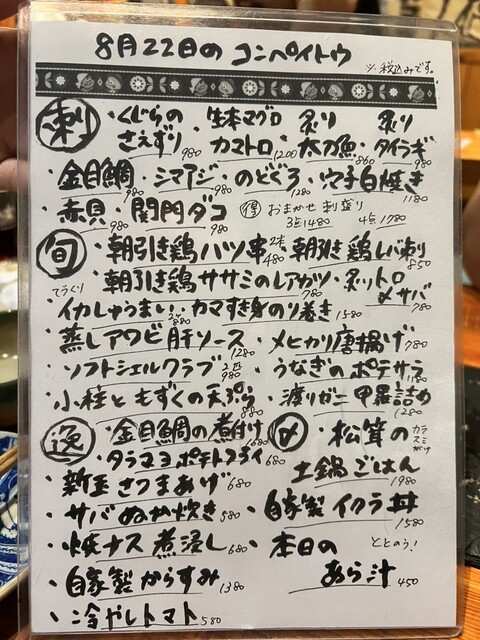 8月22日の コンペイトウ
※税込みです。
刺
・くじらのさえずり 980 ・生本マグロカマトロ 1200 ・炙り太刀魚 860 ・炙りタイラギ 980
・金目鯛 980 ・シマアジ 980 ・のどぐろ 1280 ・穴子白焼き 1180
・赤貝 980 ・関門ダコ 980 得 おまかせ刺盛り 3点1480 4点1780
旬
・朝引き鶏ハツ串 2本 480 ・朝引き鶏レバ刺し 850
・朝引き鶏ササミのレアカツ 780 ・炙りトロ〆サバ 780
てづくり
・イカしゅうまい 2ヶ 880 ・カマすき身のり巻き 1580
・蒸しアワビ肝ソース 1280 ・メヒカリ唐揚げ 780
・ソフトシェルクラブ 2匹 980 ・うなぎのポテサラ
・小柱ともずくの天ぷら 880 ・渡りガニ甲羅詰め 1280
逸
・金目鯛の煮付け 1680
・タラマヨポテトフライ 680
・新玉さつまあげ 680
・サバぬか炊き 580
・焼ナス煮浸し 680
・自家製からすみ 1380
・冷やしトマト 580
〆
・松茸の土鍋ごはん 1980
カラスミがけ
・自家製イクラ丼 1580
・本日のあら汁 450
ととのう！